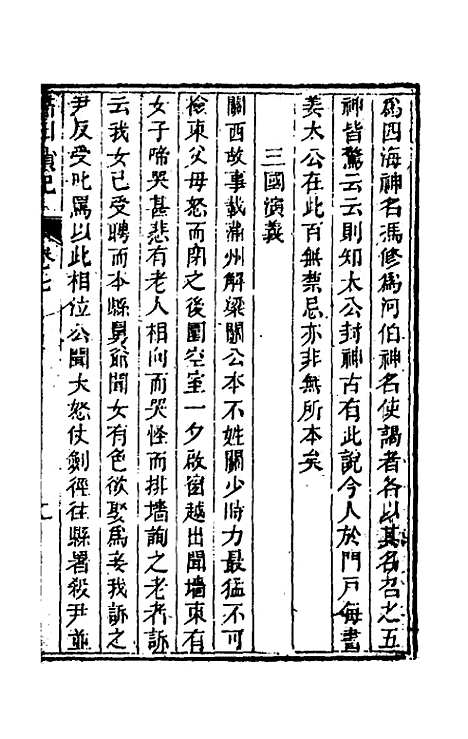 爲四海神名馮修爲河伯神名使謁者各以其名召之五
神皆驚云云則知太公封神古有此說今人於門戶每書
姜太公在此百無禁忌亦非無所本矣
三國演義
關西故事載蒲州解梁關公本不姓關少時力最猛不可
檢束父母怒而閉之後園空室一夕啟窗越出聞墻東有
女子啼哭甚悲有老人相向而哭怪而排墻詢之老者訴
云我女已受聘而本縣舅爺聞女有色欲娶爲妾我訴之
尹反受叱罵以此相位公聞大怒仗劍徑往縣署殺尹並